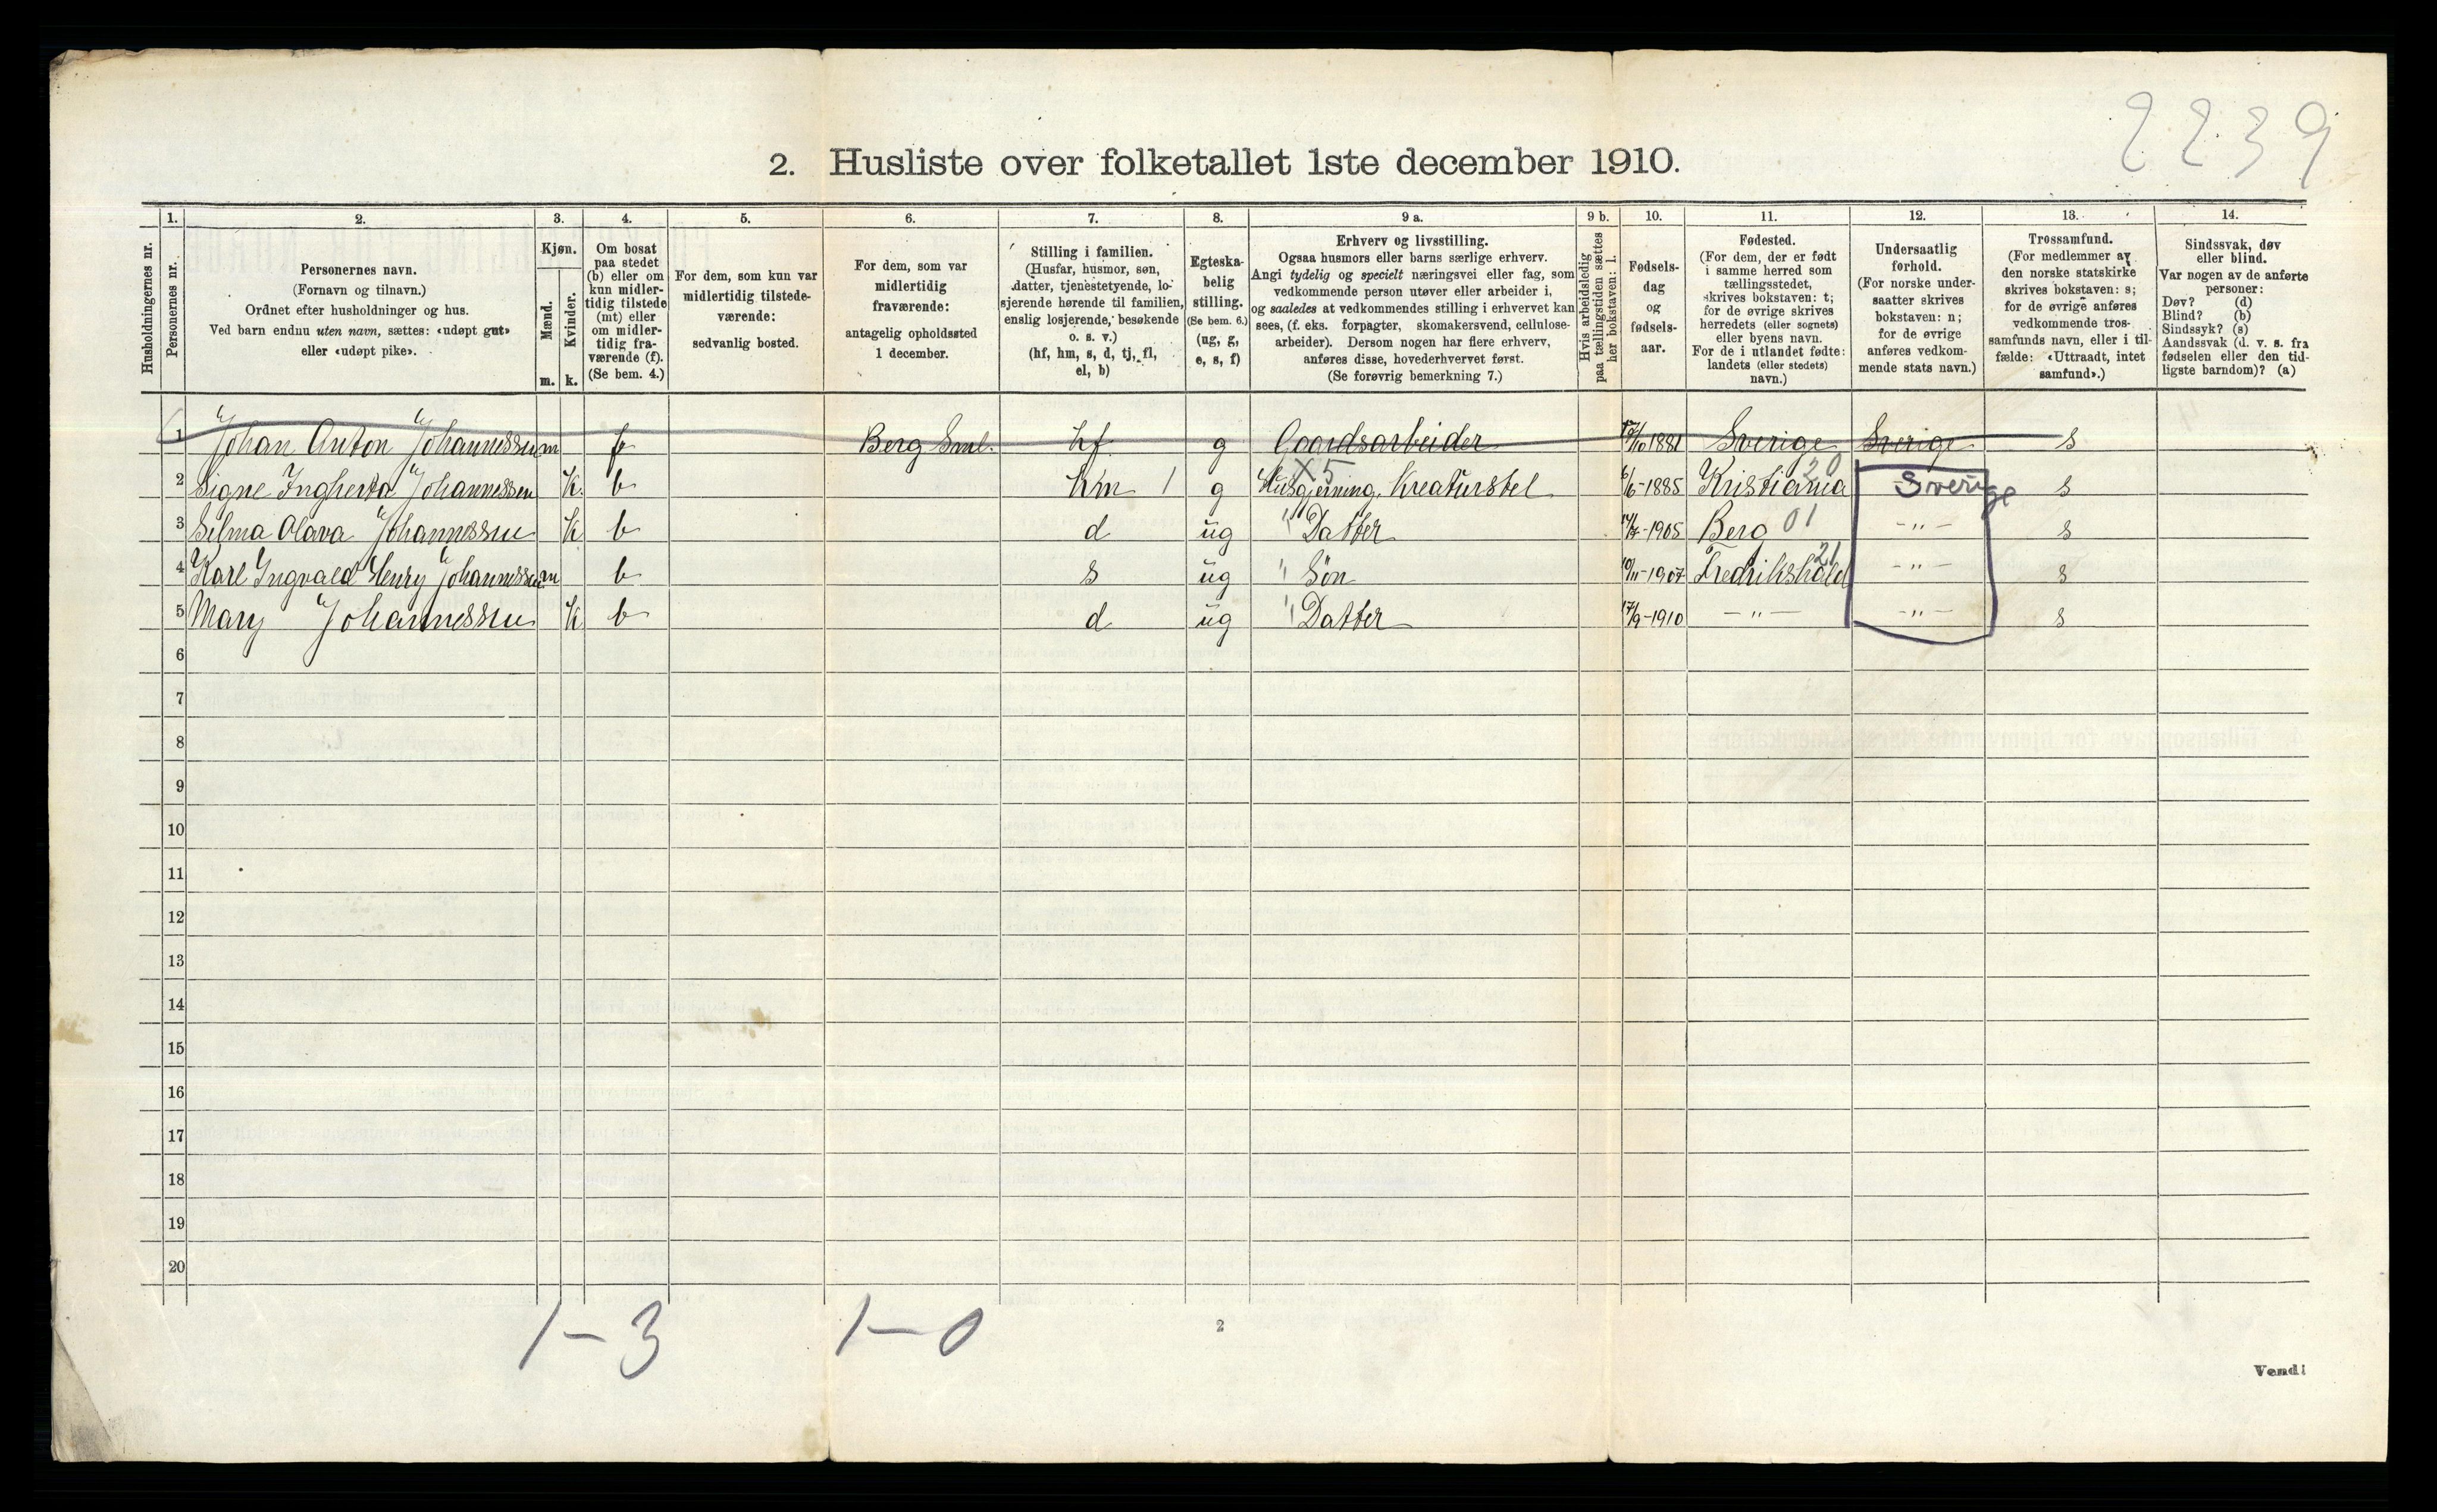 2239
2. Husliste over folketallet 1ste december 1910.
Husholdningernes nr.
1. 2. 3. 4. 5. 6. 7. 8. 9 a. 9 b. 10. 11. 12. 13. 14.
Personernes nr.
Personernes navn.
(Fornavn og tilnavn.)
Ordnet efter husholdninger og hus.
Ved barn endnu uten navn, sættes: «udøpt gut»
eller «udøpt pike».
Kjøn.
Mænd.
Kvinder.
m. k.
Om bosat
paa stedet
(b) eller om
kun midler-
tidig tilstede
(mt) eller
om midler-
tidig fra-
værende (f).
(Se bem. 4.)
For dem, som kun var
midlertidig tilstede-
værende:
sedvanlig bosted.
For dem, som var
midlertidig
fraværende:
antagelig opholdssted
1 december.
Stilling i familien.
(Husfar, husmor, søn,
datter, tjenestetyende, lo-
sjerende hørende til familien,
enslig losjerende, besøkende
o. s. v.)
(hf, hm, s, d, tj, fl,
el, b)
Egteska-
belig
stilling.
(Se bem. 6.)
(ug, g,
e, s, f)
Erhverv og livsstilling.
Ogsaa husmors eller barns særlige erhverv.
Angi tydelig og specielt næringsvei eller fag, som
vedkommende person utøver eller arbeider i,
og saaledes at vedkommendes stilling i erhvervet kan
sees, (f. eks. forpagter, skomakersvend, cellulose-
arbeider). Dersom nogen har flere erhverv,
anføres disse, hovederhvervet først.
(Se forøvrig bemerkning 7.)
Hvis arbeidsledig
paa tællingstiden sættes
her bokstaven: l.
Fødsels-
dag
og
fødsels-
aar.
Fødested.
(For dem, der er født
i samme herred som
tællingsstedet,
skrives bokstaven: t;
for de øvrige skrives
herredets (eller sognets)
eller byens navn.
For de i utlandet fødte:
landets (eller stedets)
navn.)
Undersaatlig
forhold.
(For norske under-
saatter skrives
bokstaven: n;
for de øvrige
anføres vedkom-
mende stats navn.)
Trossamfund.
(For medlemmer av
den norske statskirke
skrives bokstaven: s;
for de øvrige anføres
vedkommende tros-
samfunds navn, eller i til-
fælde: «Uttraadt, intet
samfund».)
Sindssvak, døv
eller blind.
Var nogen av de anførte
personer:
Døv? (d)
Blind? (b)
Sindssyk? (s)
Aandssvak (d. v. s. fra
fødselen eller den tid-
ligste barndom)? (a)
1 Johan Anton Johannessen m f Berg Sml. hf g Gaardsarbeider /10 1881 Sverige Sverige s
2 Signe Ingberta Johannessen K. b hm 1 g X5 Husgjerning, Kreaturstel 6/6-1885 Kristiania 20 Sverige s
3 Selma Olava Johannessen K b d ug " Datter 14/7-1905 Berg 01 -"- s
4 Karl Ingvald Henry Johannessen m b s ug " Søn 10/11-1907 Fredrikshald 21 -"- s
5 Mary Johannessen K b d ug " Datter 17/9-1910 -"- -"- s
6
7
8
9
10
11
12
13
14
15
16
17
18
19
20
1-3 1-0
2
Vend!